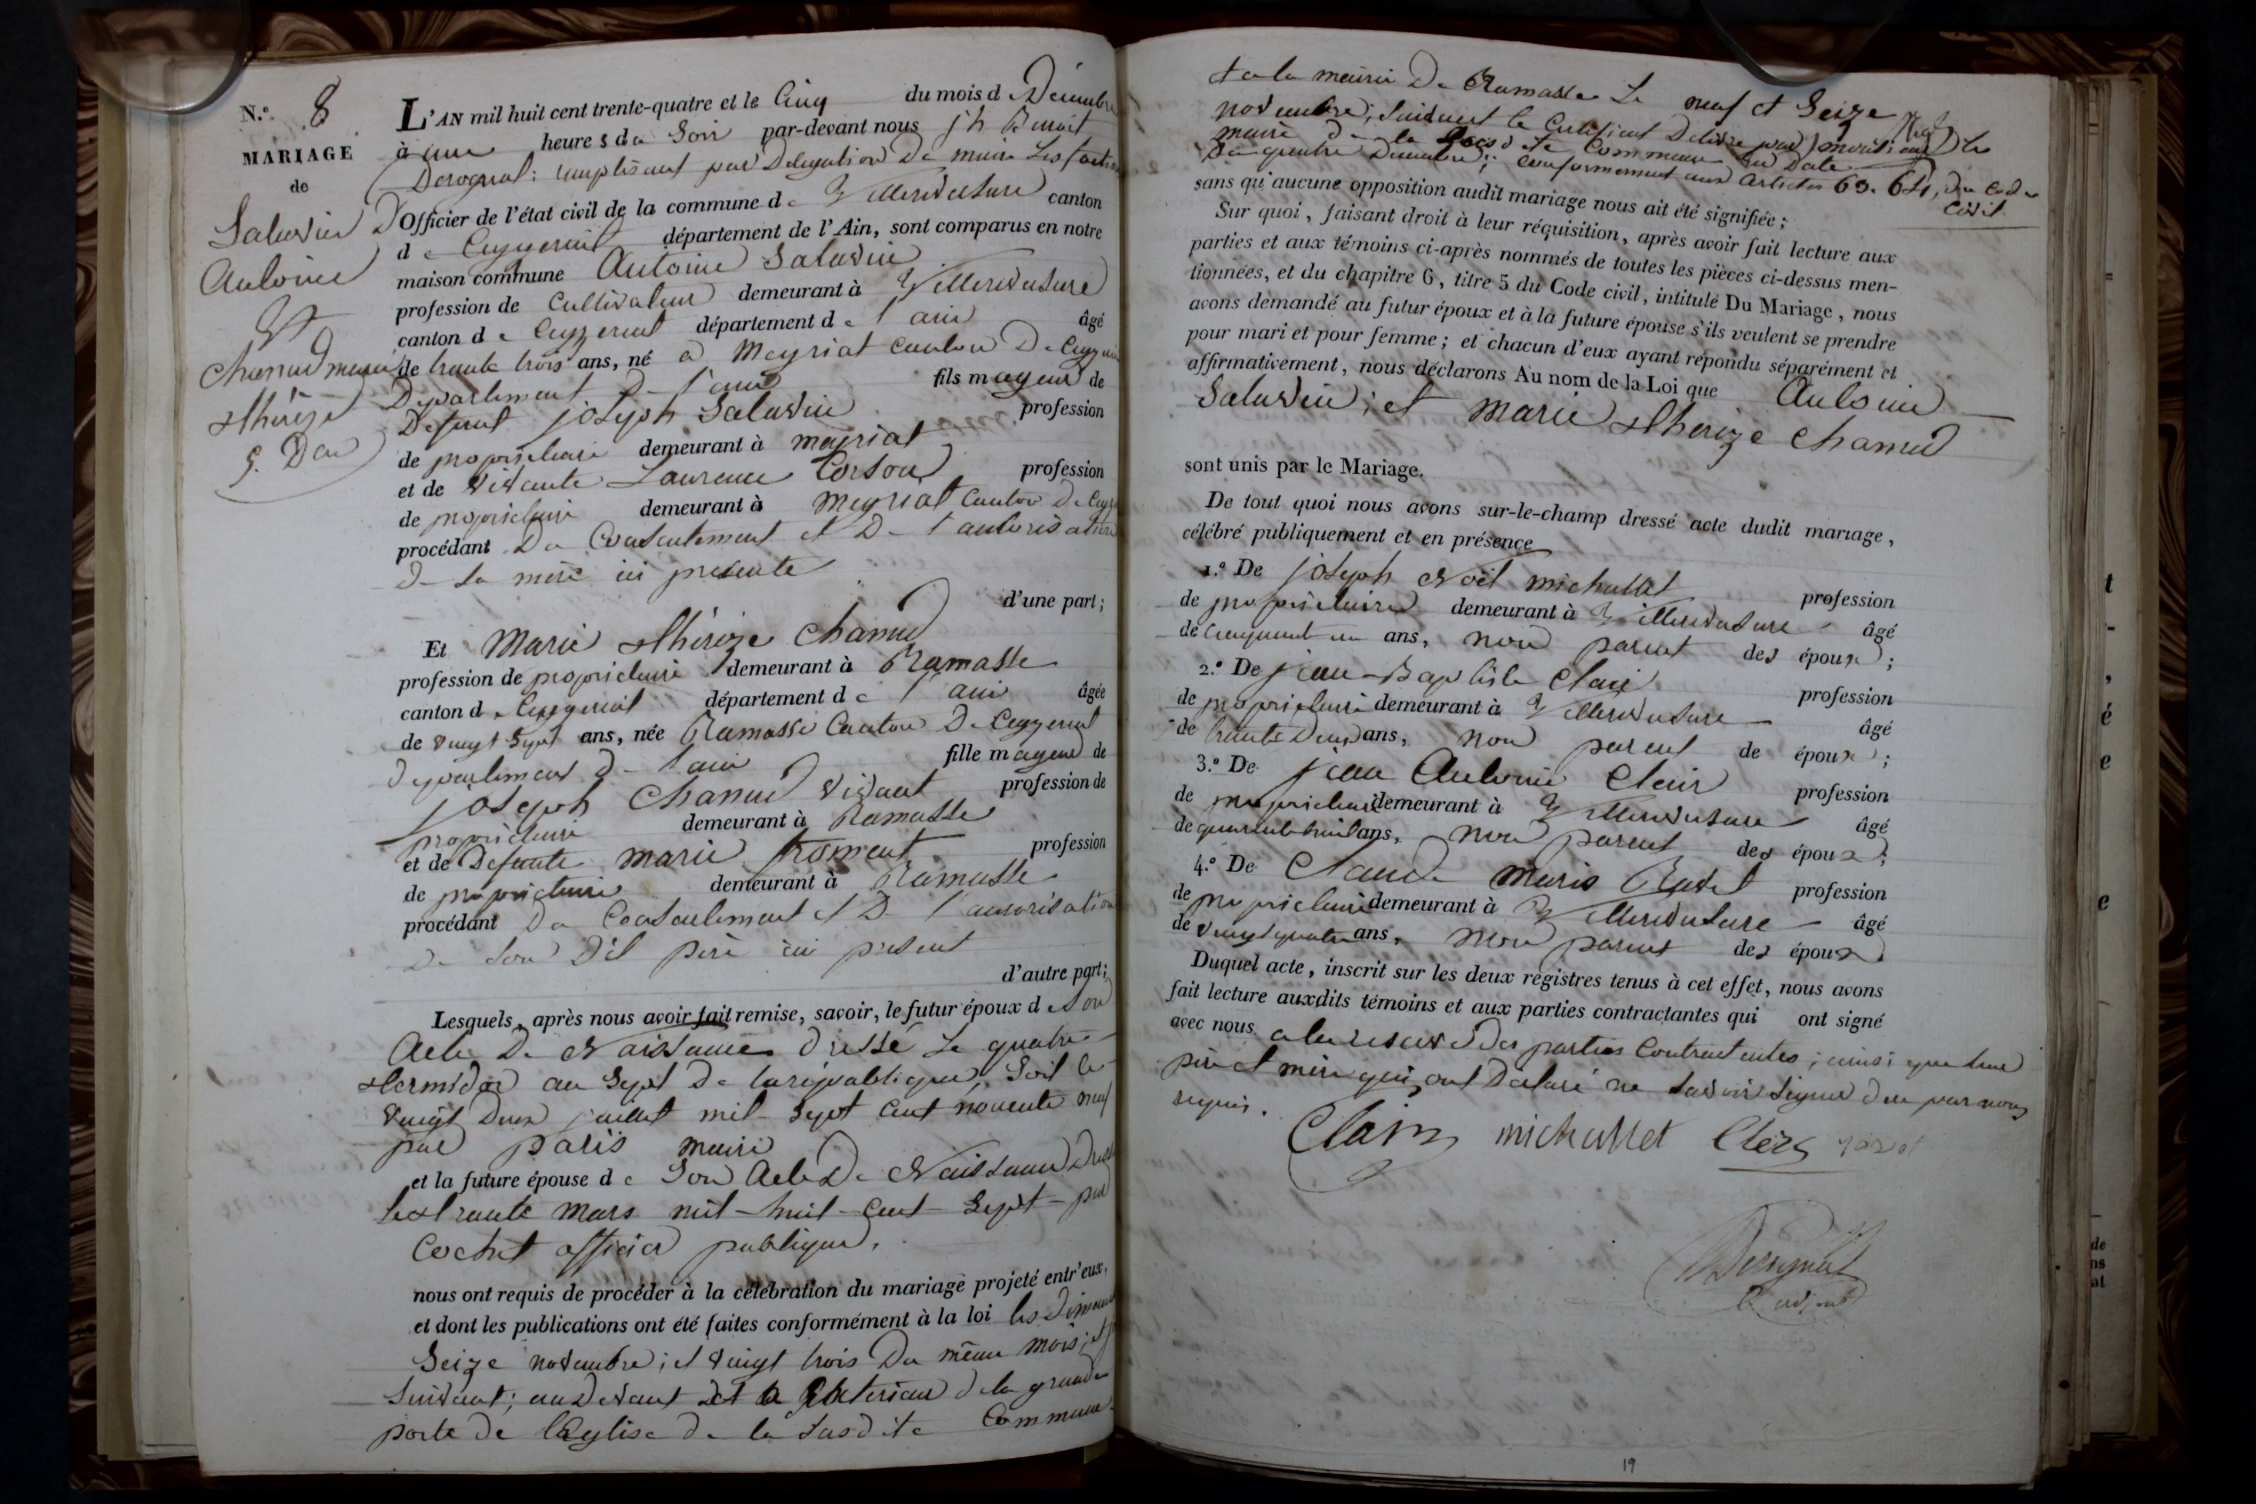 N.º 8
MARIAGE
de
Salavin
Antoine
Et
Chanud marie
thérèze
L'AN mil huit cent trente-quatre et le Cinq du mois de Décembre
à une heures du Soir par-devant nous jh Benoit
remplissant par Délégation De maire les fonctions
Officier de l'état civil de la commune de Villereversure canton
de Ceyzeriat département de l'Ain, sont comparus en notre
maison commune Antoine Salavin
profession de Cultivateur demeurant à Villereversure
canton de Ceyzeriat département de l'ain âgé
de trente trois ans, né à Meyriat Canton De Ceyzeriat
Département De l'ain fils mageur de
Defunt joseph Salavin profession
de propriétaire demeurant à meyriat
et de vivante Laurence Corsou profession
de propriétaire demeurant à Meyriat Canton De Ceyz
procédant Du Consentement et De l'autorisation
De Sa mère ici présente
d'une part;
Et Marie thérèze Chanud
profession de propriétaire demeurant à Ramasse
canton de Ceyzeriat département de l'ain âgée
de vingt Sept ans, née Ramasse Canton De Ceyzeriat
département De l'ain fille mageure de
joseph Chanud vivant profession de
propriétaire demeurant à Ramasse
et de Défunte marie froment profession
de propriétaire demeurant à Ramasse
procédant Du Consentement et De l'autorisation
De Son Dit père ici présent
d'autre part;
Lesquels, après nous avoir fait remise, savoir, le futur époux de Son
Acte De Naissance dressé Le quatre
thermidor an Sept De la république, Soit le
vingt Deux juillet mil Sept Cent nonante neuf
par paris maire
et la future épouse de Son Acte De Naissance dressé
le trante mars mil huit Cent Sept par
Cochet officier publique,
nous ont requis de procéder à la célébration du mariage projeté entr'eux,
et dont les publications ont été faites conformément à la loi les dimanches
Seize novembre; et vingt trois Du même mois;
Suivant; au Devant de la grande
porte De l'Eglise De la Susdite Commune
et a la mairie De Ramasse Le neuf et Seize
novembre; Suivant le Certificat Délivré par
maire De la Commune en Date
Du quatre Décembre; conformément aux articles 63. 64, du Code
Civil
sans qu'aucune opposition audit mariage nous ait été signifiée;
Sur quoi, faisant droit à leur réquisition, après avoir fait lecture aux
parties et aux témoins ci-après nommés de toutes les pièces ci-dessus men-
tionnées, et du chapitre 6, titre 5 du Code civil, intitulé Du Mariage, nous
avons demandé au futur époux et à la future épouse s'ils veulent se prendre
pour mari et pour femme; et chacun d'eux ayant répondu séparément et
affirmativement, nous déclarons Au nom de la Loi que Antoine
Salavin; et Marie thérèze Chanud
sont unis par le Mariage.
De tout quoi nous avons sur-le-champ dressé acte dudit mariage,
célébré publiquement et en présence
1.º De joseph Noël michallet profession
de propriétaire demeurant à Villereversure âgé
de cinquante un ans, non parent des époux;
2.º De jean-Baptiste Clair profession
de propriétaire demeurant à Villereversure âgé
de trente Deux ans, non parent de époux;
3.º De jean Antoine Clair profession
de propriétaire demeurant à Villereversure âgé
de quarante huit ans, non parent des époux;
4.º De Claude marie Ravet profession
de propriétaire demeurant à Villereversure âgé
de vingt quatre ans, non parent des époux
Duquel acte, inscrit sur les deux registres tenus à cet effet, nous avons
fait lecture auxdits témoins et aux parties contractantes qui ont signé
avec nous a la reserve Des parties Contractantes; ainsi que leur
père et mère qui ont Déclaré ne savoir signer De ce par nous
requis.
Clair michallet Clerc
19